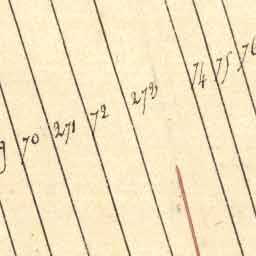 70 271 72 273 74 75 76